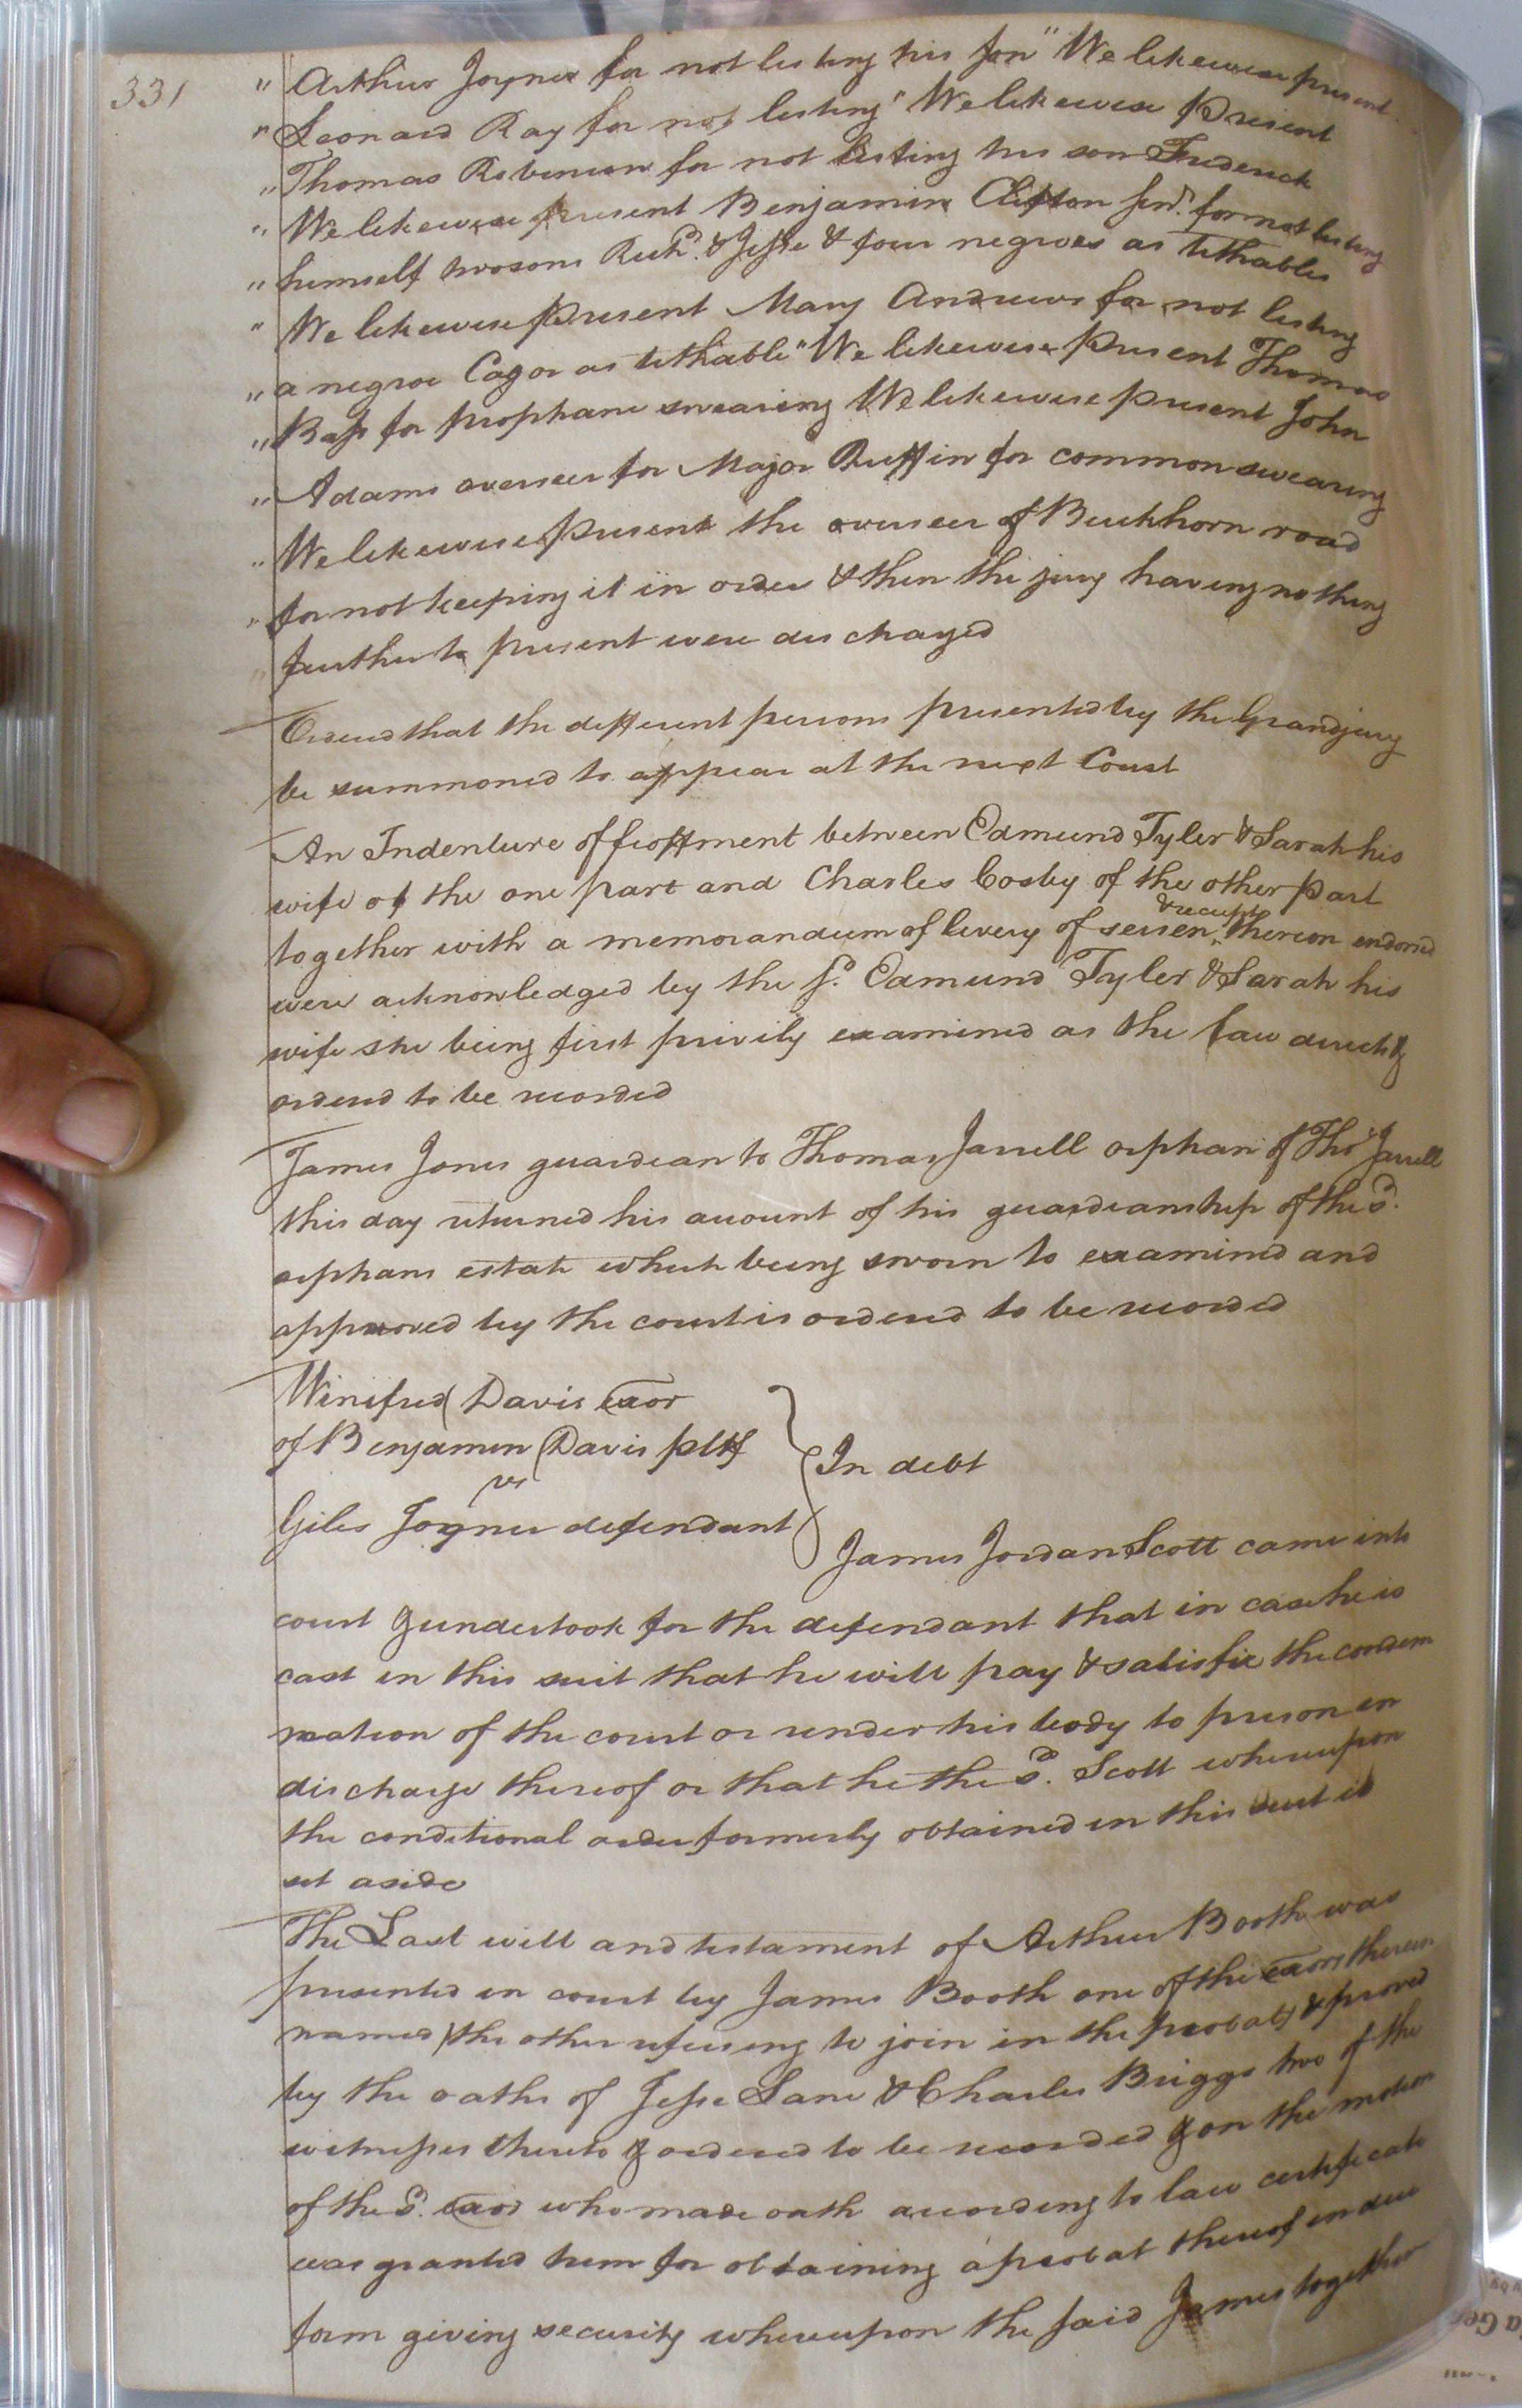 331
" Arthur Joyner for not listing his son " We likewise present
" Leonard Ray for not listing " We likewise Present
" Thomas Robinson for not listing his son Frederick
" We likewise present Benjamin Clifton senr. for not listing
" himself two sons Richd. & Jesse & four negroes as tithables
" We likewise Present Mary Andrews for not listing
" a negroe Cagor as tithable " We likewise Present Thomas
" Bass for prophane swearing We likewise present John
" Adams overseer for Major Ruffin for common swearing
" We likewise Present the overseer of Buckhorn road
" for not keeping it in order & then the jury having nothing
further to present were discharged
Ordered that the different persons presented by the Grandjury
be summoned to appear at the next Court
An Indenture of feoffment between Edmund Tyler & Sarah his
wife of the one part and Charles Cosby of the other Part
& receipt
together with a memorandum of livery of seisen thereon endorsed
were acknowledged by the sd. Edmund Tyler & Sarah his
wife she being first privily examined as the law directs &
ordered to be recorded
James Jones guardean to Thomas Jarrell orphan of Thos Jarrell
this day returned his account of his guardeanship of the sd.
orphans estate which being sworn to examined and
approved by the court is ordered to be recorded
Winifred Davis exor
of Benjamin Davis pltf
vs
In debt
Giles Joyner defendant
James Jordan Scott came into
court & undertook for the defendant that in case he is
cast in this suit that he will pay & satisfie the condem
nation of the court or render his body to prison in
discharge thereof or that he the sd. Scott whereupon
the conditional order formerly obtained in this suit is
set aside
The Last will and testament of Arthur Booth was
presented in court by James Booth one of the exors therein
named (the other refuseing to join in the probat) & proved
by the oaths of Jesse Lane & Charles Briggs two of the
witnesses thereto & ordered to be recorded & on the motion
of the sd. exor who made oath according to law certificate
was granted him for obtaining a probat thereof in due
form giving security whereupon the said James together